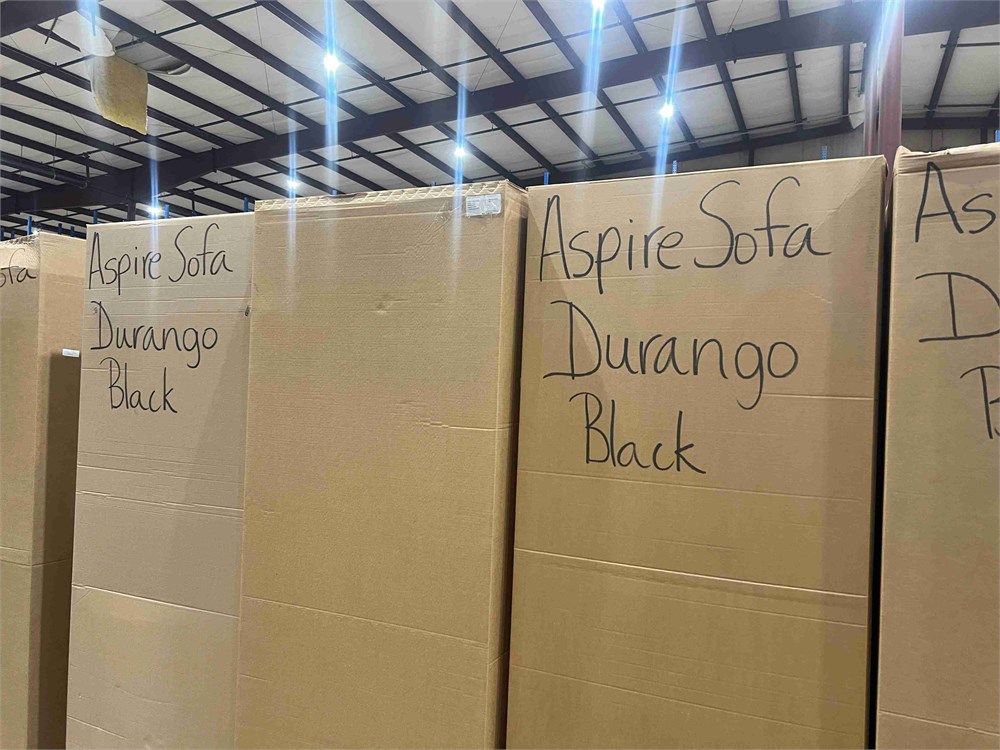 ofa
Aspire Sofa
Durango
Black
Aspire Sofa
Durango
Black
As
D
B